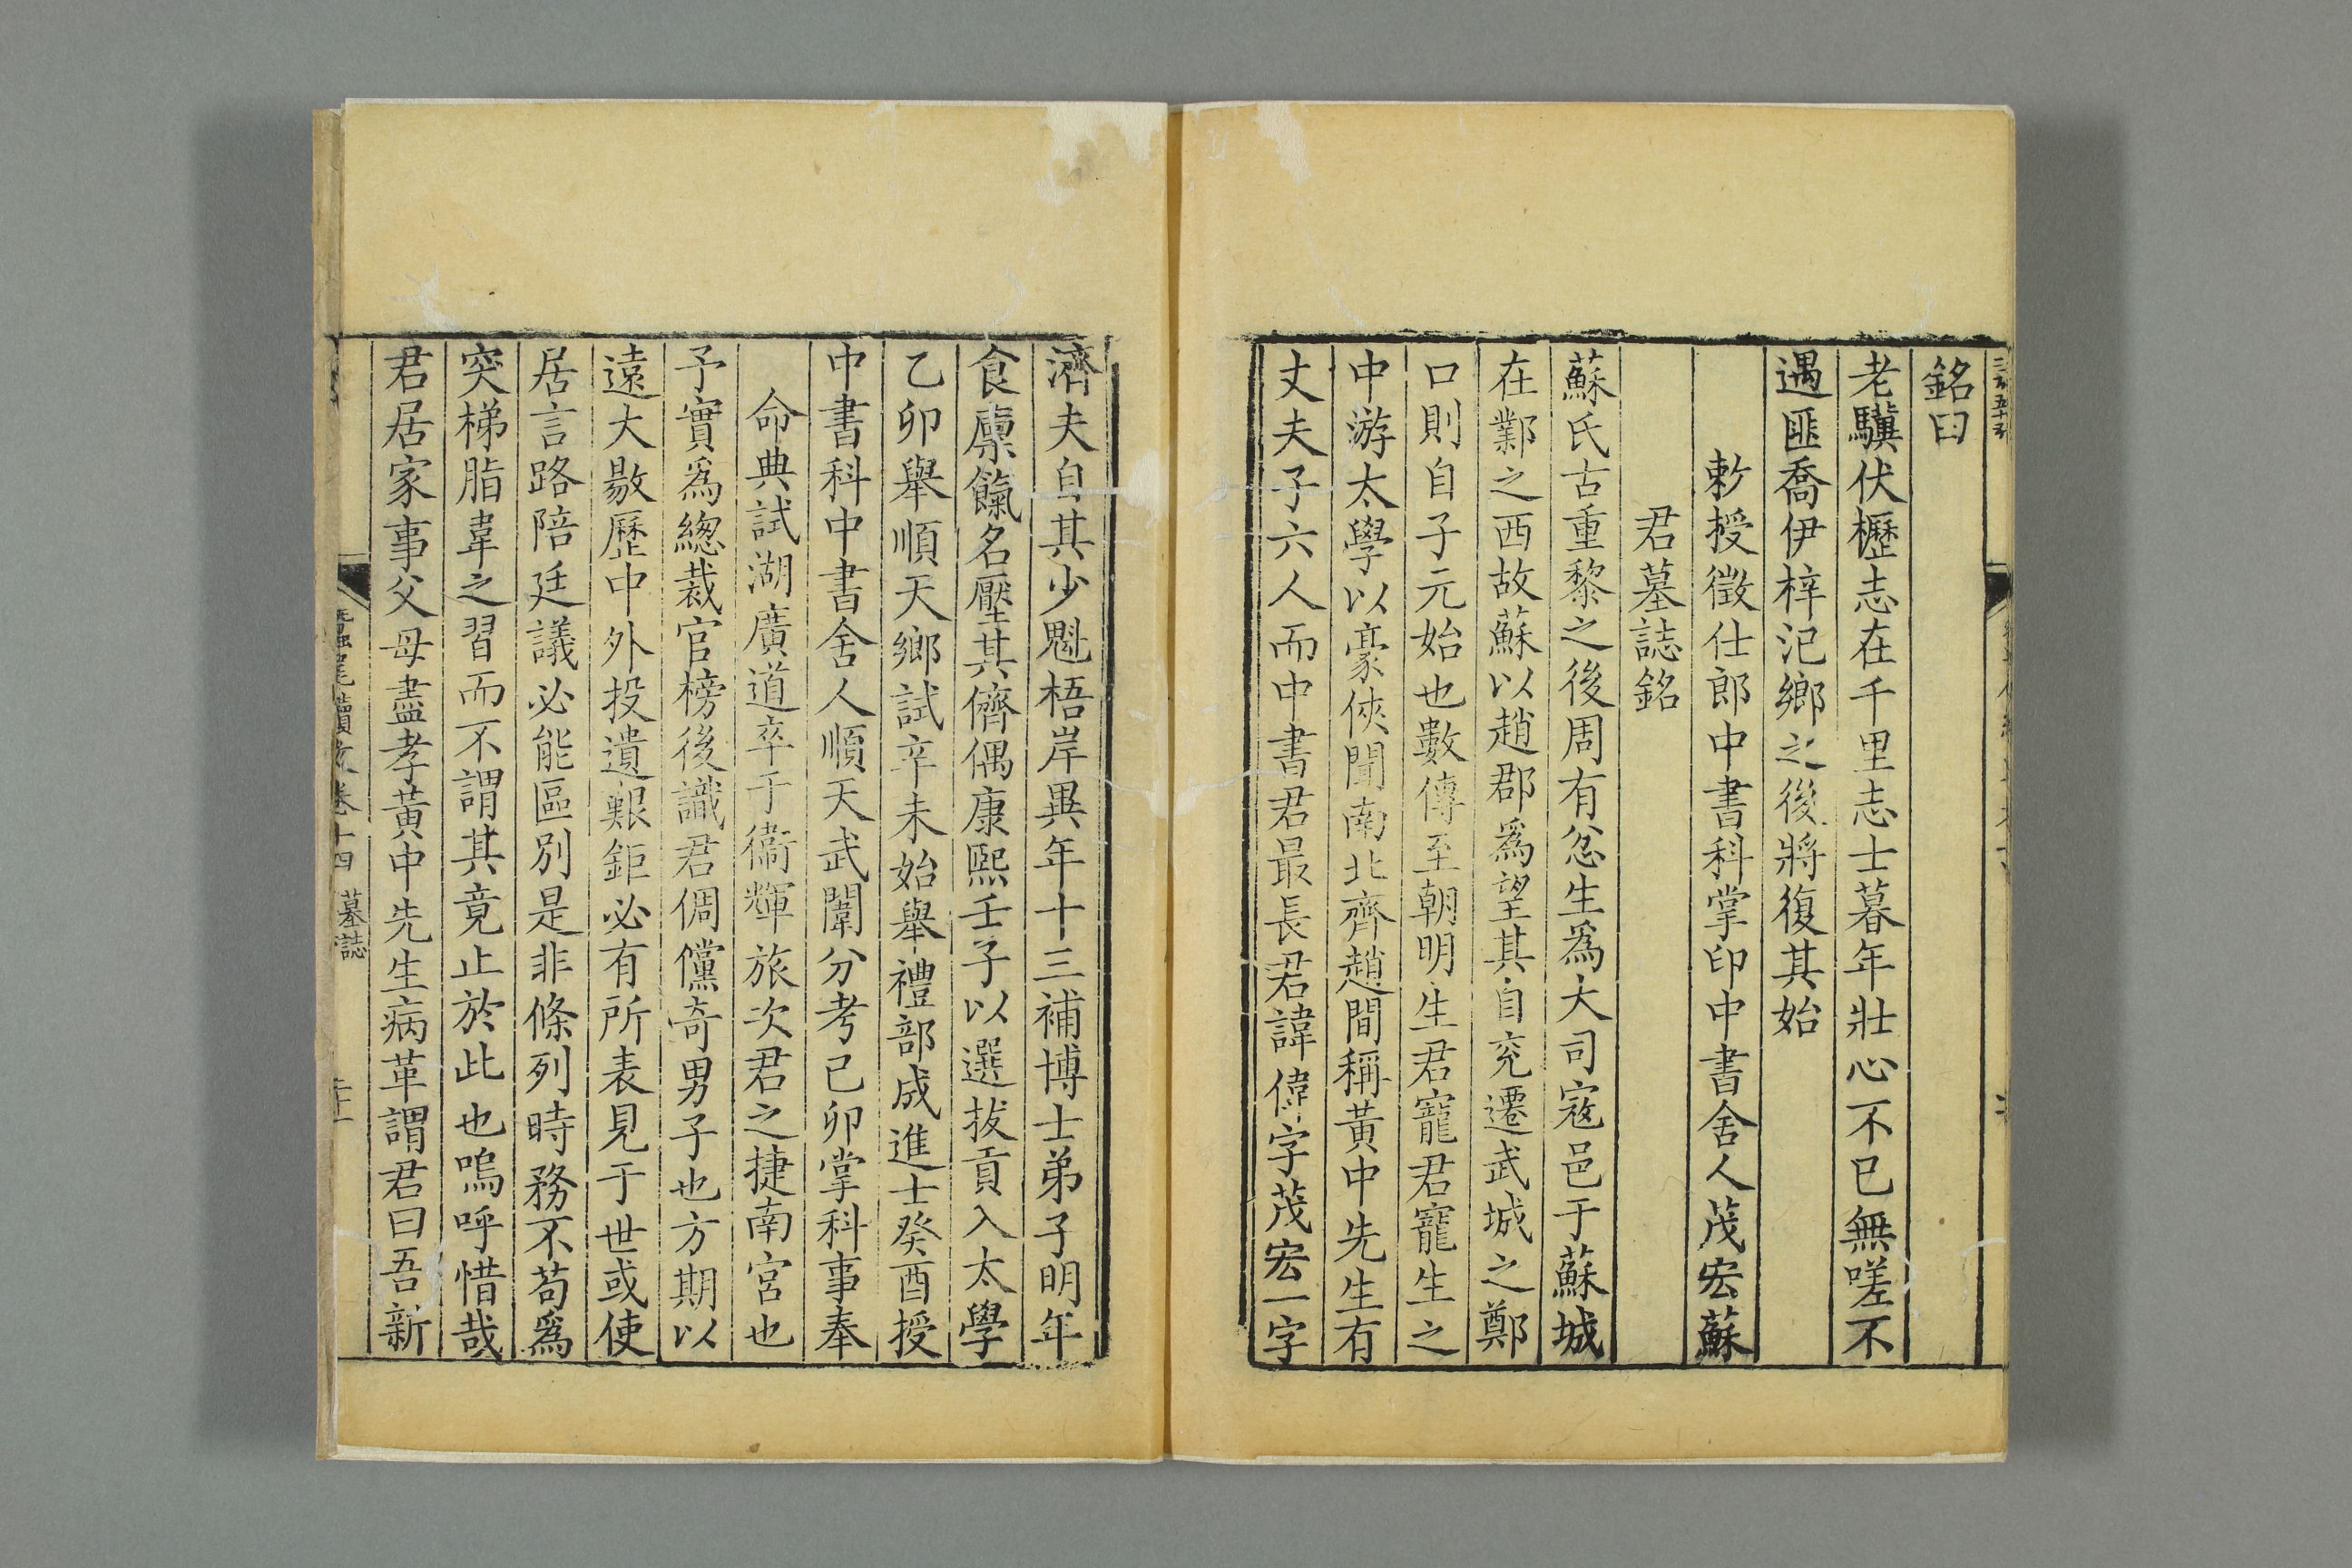 銘曰
老驥伏櫪志在千里志士暮年壯心不已無嗟不
遇匪喬伊梓汜鄉之後將復其始
敕授徵仕郎中書科掌印中書舍人茂宏蘇
君墓誌銘
蘇氏古重黎之後周有忿生爲大司寇邑于蘇城
在鄴之西故蘇以趙郡爲望其自兖遷武城之鄭
口則自子元始也數傳至朝明生君寵君寵生之
中游太學以豪俠聞南北齊趙間稱黃中先生有
丈夫子六人而中書君最長君諱偉字茂宏一字
濟夫自其少魁梧岸異年十三補博士弟子明年
食廪餼名壓其儕偶康熙壬子以選拔貢入太學
乙卯舉順天鄉試辛未始舉禮部成進士癸酉授
中書科中書舍人順天武闈分考己卯掌科事奉
命典試湖廣道卒于衞輝旅次君之捷南宮也
予實爲緫裁官榜後識君倜儻奇男子也方期以
遠大敭歷中外投遺艱鉅必有所表見于世或使
居言路陪廷議必能區別是非條列時務不苟爲
突梯脂韋之習而不謂其竟止於此也嗚呼惜哉
君居家事父母盡孝黃中先生病革謂君曰吾新
蠶尾續文卷十四 墓誌